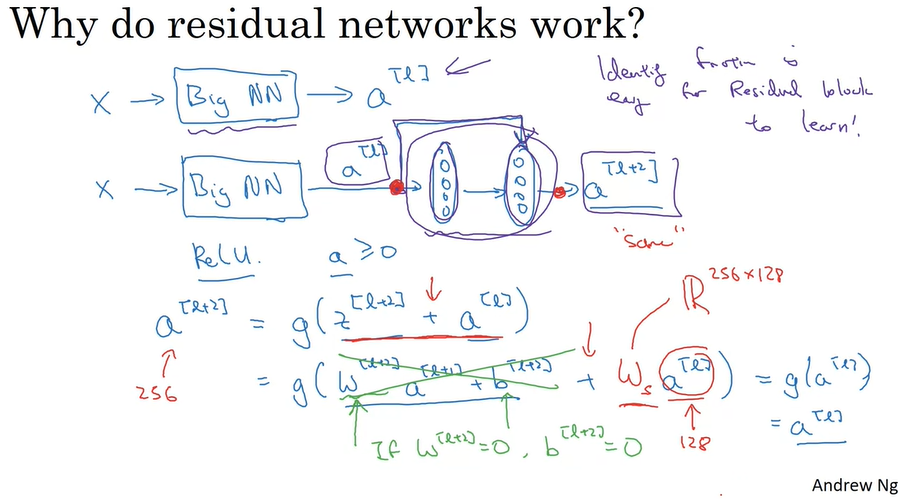 Why do residual networks work?
X → Big NN → a^[l]
Identity function is
easy for Residual block
to learn!
X → Big NN → a^[l] → a^[l+2]
"same"
ReLU. a ≥ 0
ℝ^256×128
a^[l+2] = g(z^[l+2] + a^[l])
256
= g(W^[l+2] a^[l+1] + b^[l+2] + W_s a^[l]) = g(a^[l])
= a^[l]
128
If W^[l+2] = 0, b^[l+2] = 0
Andrew Ng